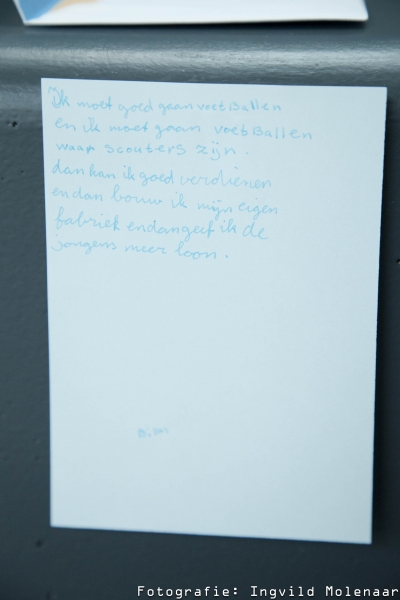 Ik moet goed gaan voetballen
en ik moet gaan voetballen
waar scouters zijn.
dan kan ik goed verdienen
en dan bouw ik mijn eigen
fabriek en dan geef ik de
jongens meer loon.
Fotografie: Ingvild Molenaar